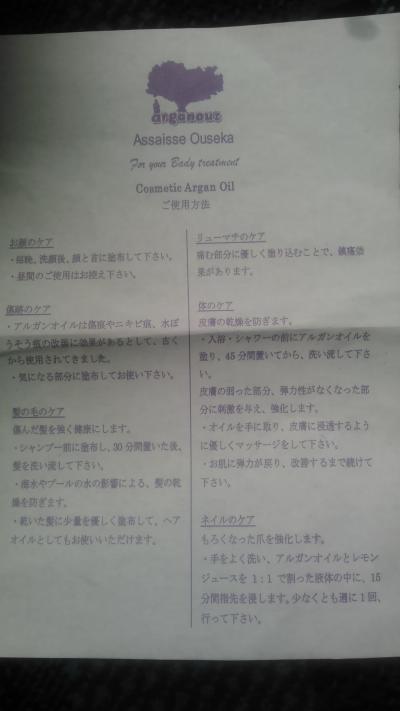 arganour
Assaisse Ouseka
For your Body treatment
Cosmetic Argan Oil
ご使用方法
お顔のケア
・毎晩、洗顔後、顔と首に塗布して下さい。
・昼間のご使用はお控え下さい。
傷跡のケア
・アルガンオイルは傷痕やニキビ痕、水ぼ
うそう痕の改善に効果があるとして、古く
から使用されてきました。
・気になる部分に塗布してお使い下さい。
髪の毛のケア
傷んだ髪を強く健康にします。
・シャンプー前に塗布し、30分間置いた後、
髪を洗い流して下さい。
・海水やプールの水の影響による、髪の乾
燥を防ぎます。
・乾いた髪に少量を優しく塗布して、ヘア
オイルとしてもお使いいただけます。
リューマチのケア
痛む部分に優しく塗り込むことで、鎮痛効
果があります。
体のケア
皮膚の乾燥を防ぎます。
・入浴・シャワーの前にアルガンオイルを
塗り、45分間置いてから、洗い流して下さ
い。
皮膚の弱った部分、弾力性がなくなった部
分に刺激を与え、強化します。
・オイルを手に取り、皮膚に浸透するよう
に優しくマッサージをして下さい。
・お肌に弾力が戻り、改善するまで続けて
下さい。
ネイルのケア
もろくなった爪を強化します。
・手をよく洗い、アルガンオイルとレモン
ジュースを 1:1 で割った液体の中に、15
分間指先を浸します。少なくとも週に1回、
行って下さい。